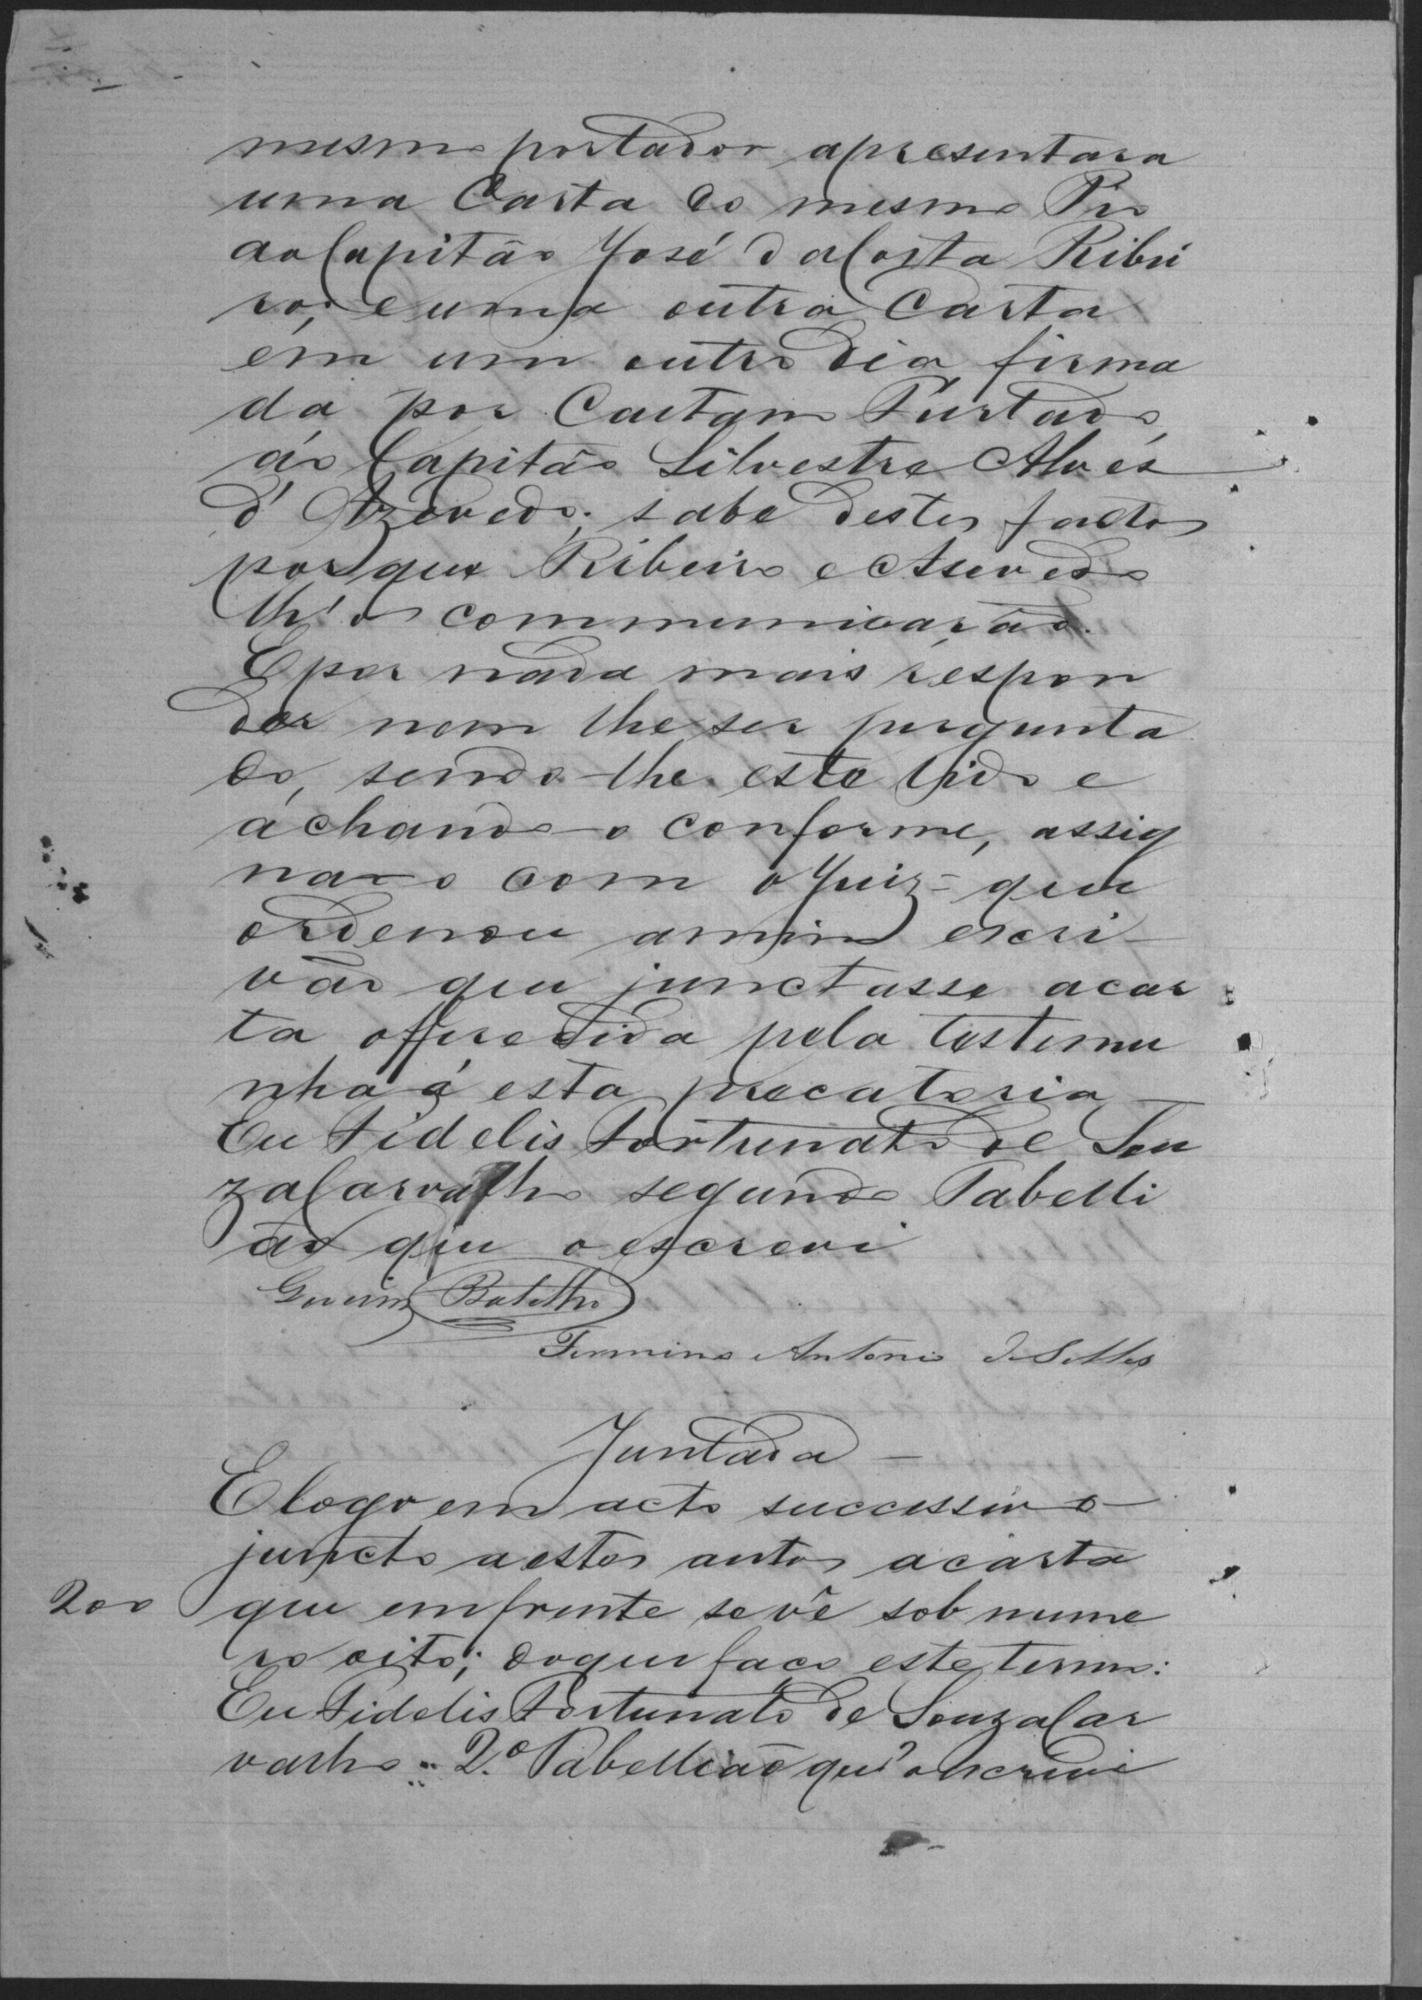 mesmo portador apresentara
uma Carta do mesmo Pio
ao Capitão José da Costa Ribei
ro; e uma outra Carta
em um outro dia firma
da por Caetano Furtado
ao Capitão Silvestre Alves
d'Azevedo; sabe destes factos
porque Ribeiro e Asevedo
lh'os communicarão.
E por nada mais respon
der nem lhe ser pergunta
do, sendo-lhe este lido e
achando-o conforme, assig
narão com o Juiz que
ordenou a mim escri-
vão que junctasse a car
ta offerecida pela testemu
nha á esta precatoria
Eu Fidelis Fortunato de Sou
za Carvalho segundo Tabelli
ão que o escrevi
Botelho
Firmino Antonio de Salles
Juntada
E logo em acto successivo
juncto a estes autos a carta
200 que em frente se vê sob nume
ro oito; do que faço este termo:
Eu Fidelis Fortunato de Souza Car
valho 2.º Tabellião que o escrevi